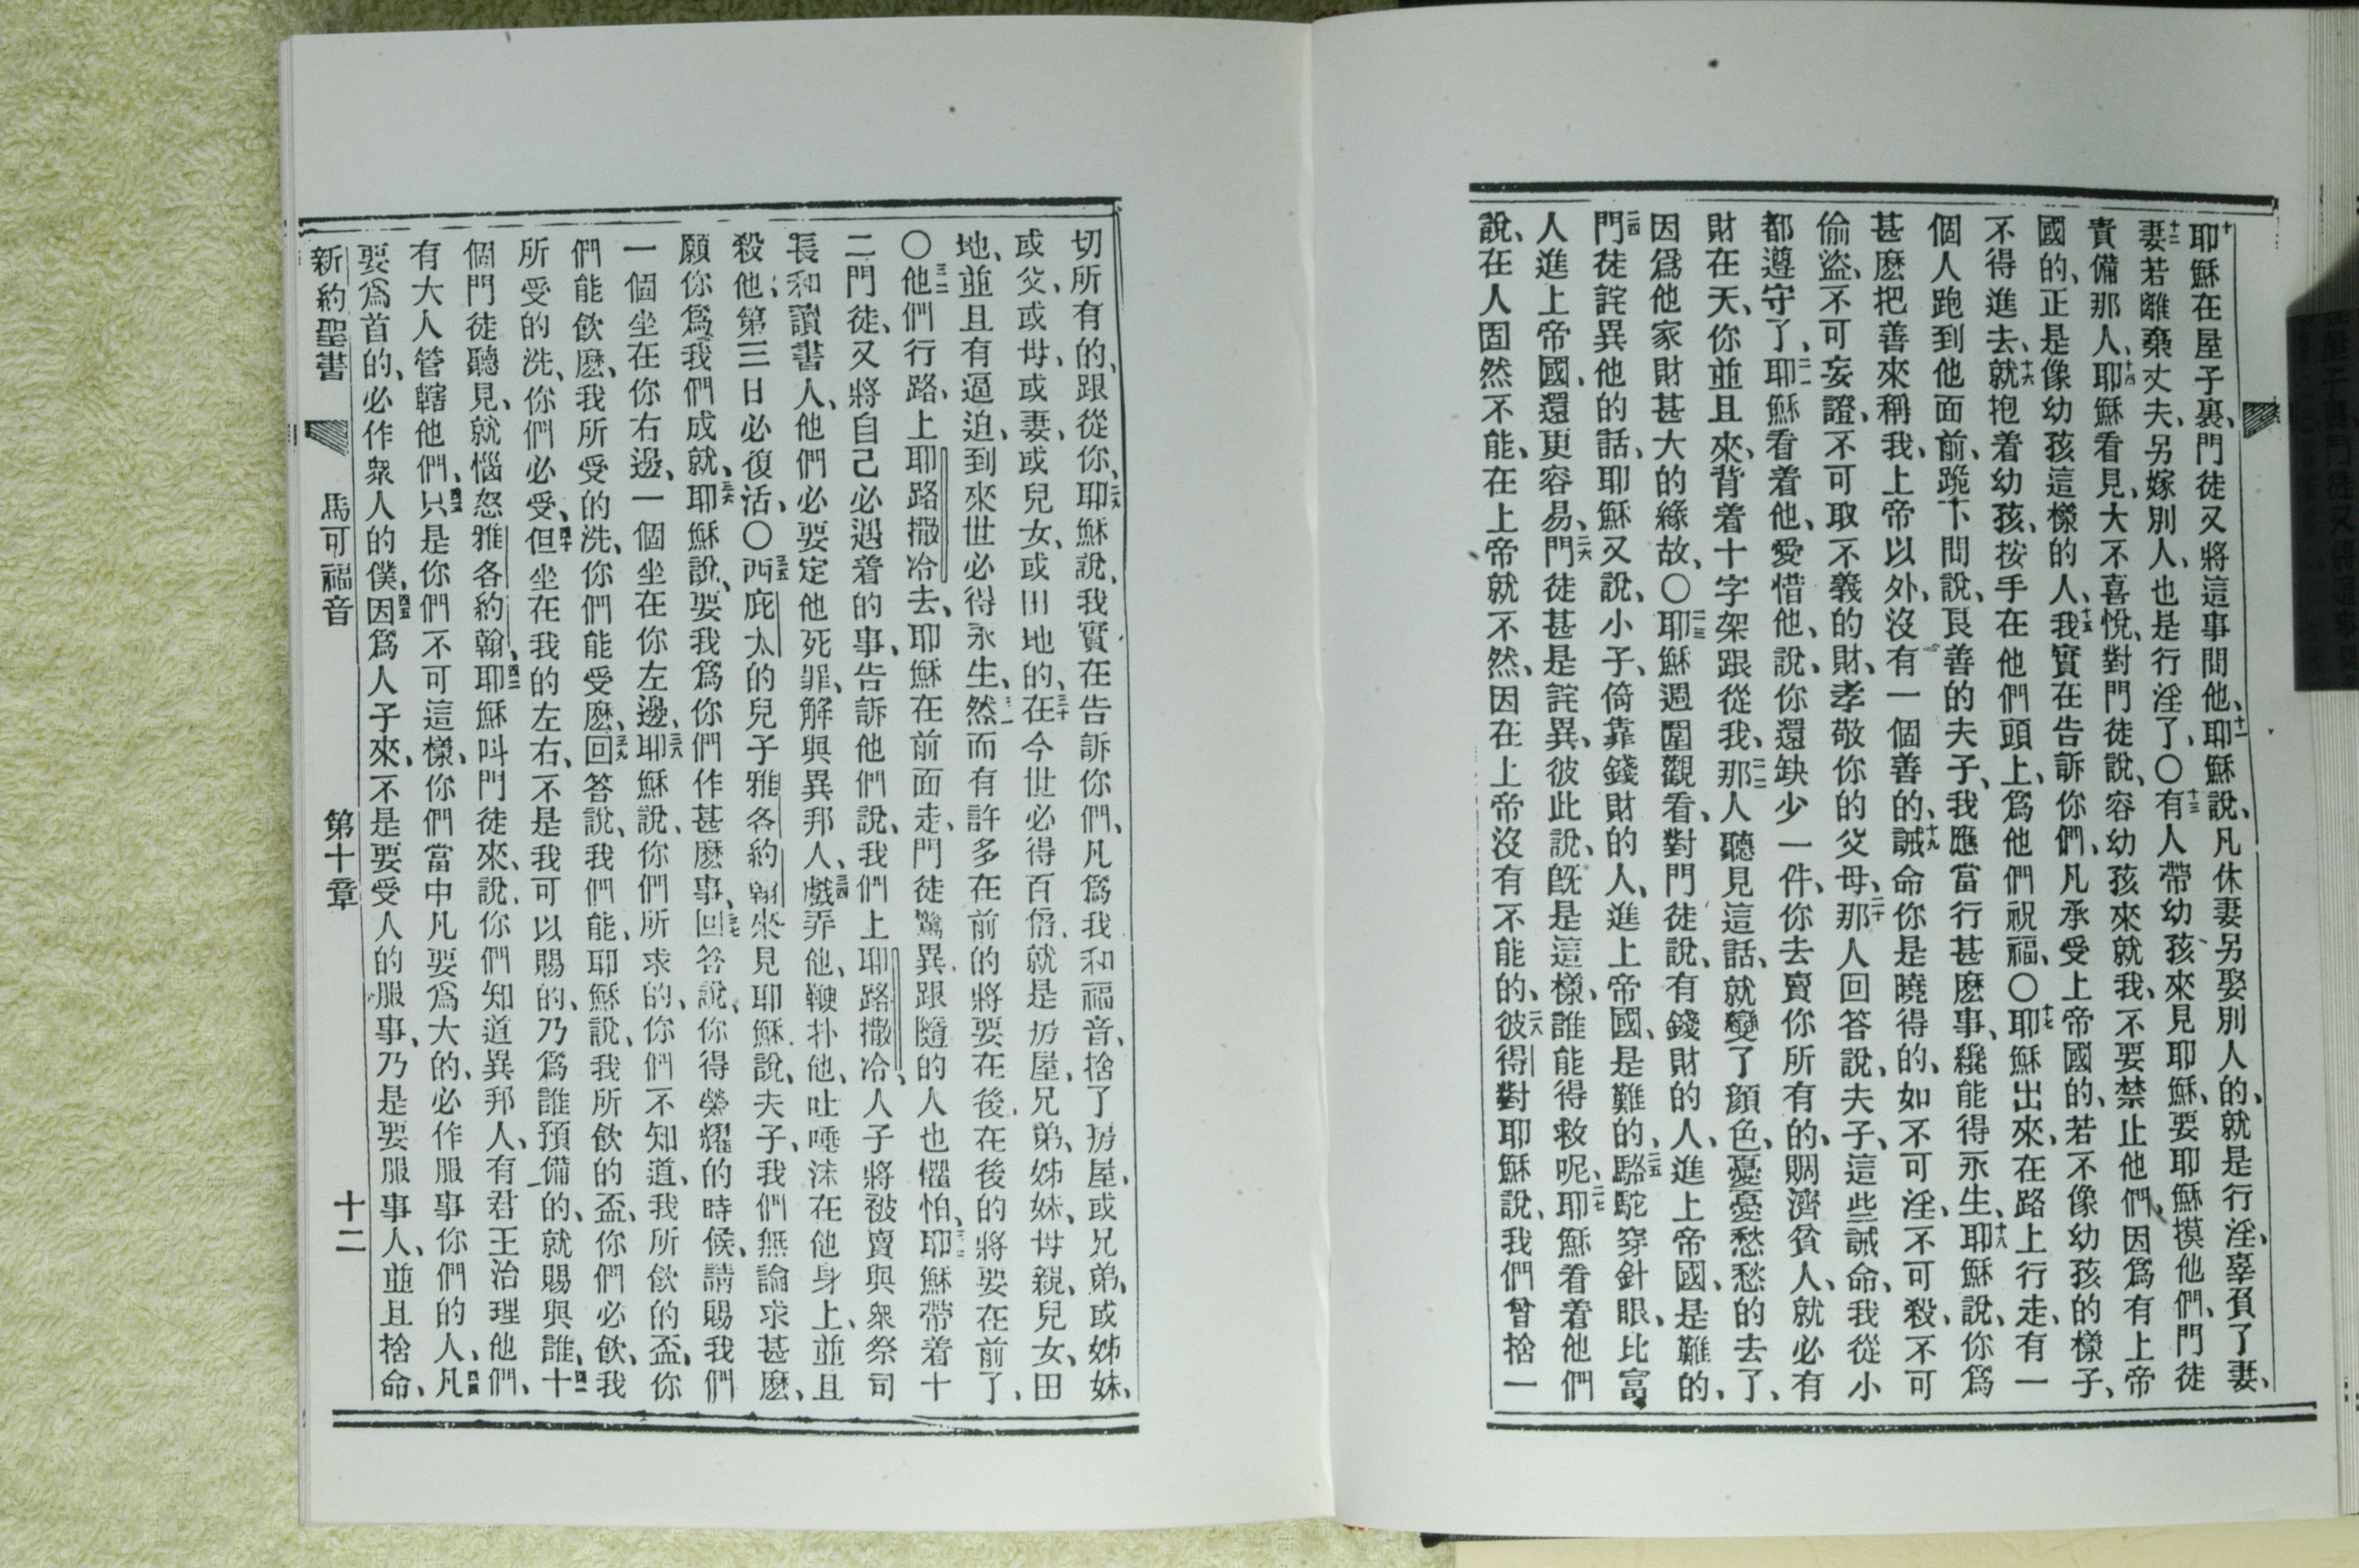 十耶穌在屋子裏、門徒又將這事問他、十一耶穌說、凡休妻另娶別人的、就是行淫、辜負了妻、
十二妻若離棄丈夫、另嫁別人、也是行淫了、〇十三有人帶幼孩來見耶穌、要耶穌摸他們、門徒
責備那人、十四耶穌看見、大不喜悅、對門徒說、容幼孩來就我、不要禁止他們、因爲有上帝
國的、正是像幼孩這樣的人、十五我實在告訴你們、凡承受上帝國的、若不像幼孩的樣子、
不得進去、十六就抱着幼孩、按手在他們頭上、爲他們祝福、〇十七耶穌出來、在路上行走、有一
個人跑到他面前、跪下問說、良善的夫子、我應當行甚麽事、纔能得永生、十八耶穌說、你爲
甚麽把善來稱我、上帝以外、沒有一個善的、十九誡命你是曉得的、如不可淫、不可殺、不可
偷盜、不可妄證、不可取不義的財、孝敬你的父母、二十那人回答說、夫子、這些誡命、我從小
都遵守了、二一耶穌看着他、愛惜他、說、你還缺少一件、你去賣你所有的、賙濟貧人、就必有
財在天、你並且來、背着十字架跟從我、二二那人聽見這話、就變了顏色、憂憂愁愁的去了、
因爲他家財甚大的緣故、〇二三耶穌週圍觀看、對門徒說、有錢財的人、進上帝國、是難的、
二四門徒詫異他的話、耶穌又說、小子、倚靠錢財的人、進上帝國、是難的、二五駱駝穿針眼、比富
人進上帝國、還更容易、二六門徒甚是詫異、彼此說、旣是這樣、誰能得救呢、二七耶穌看着他們
說、在人固然不能、在上帝就不然、因在上帝沒有不能的、二八彼得對耶穌說、我們曾捨一
切所有的、跟從你、二九耶穌說、我實在告訴你們、凡爲我和福音、捨了房屋、或兄弟、或姊妹、
或父、或母、或妻、或兒女、或田地的、三十在今世必得百倍、就是房屋、兄弟、姊妹、母親、兒女、田
地、並且有逼迫、到來世必得永生、三一然而有許多在前的將要在後、在後的將要在前了、
〇三二他們行路、上耶路撒冷去、耶穌在前面走、門徒驚異、跟隨的人也懼怕、三三耶穌帶着十
二門徒、又將自己必遇着的事、告訴他們說、我們上耶路撒冷、人子將被賣與衆祭司
長和讀書人、他們必要定他死罪、解與異邦人、三四戲弄他、鞭扑他、吐唾沫在他身上、並且
殺他、第三日必復活、〇三五西庇太的兒子雅各約翰來見耶穌、說、夫子、我們無論求甚麽、
願你爲我們成就、三六耶穌說、要我爲你們作甚麽事、三七回答說、你得榮耀的時候、請賜我們
一個坐在你右邊、一個坐在你左邊、三八耶穌說、你們所求的、你們不知道、我所飮的盃、你
們能飮麽、我所受的洗、你們能受麽、三九回答說、我們能、耶穌說、我所飮的盃、你們必飮、我
所受的洗、你們必受、四十但坐在我的左右、不是我可以賜的、乃爲誰預備的、就賜與誰、四一十
個門徒聽見、就惱怒雅各約翰、四二耶穌叫門徒來、說、你們知道異邦人、有君王治理他們、
有大人管轄他們、四三只是你們不可這樣、你們當中凡要爲大的、必作服事你們的人、四四凡
要爲首的、必作衆人的僕、四五因爲人子來、不是要受人的服事、乃是要服事人、並且捨命、
新約聖書 馬可福音 第十章 十二